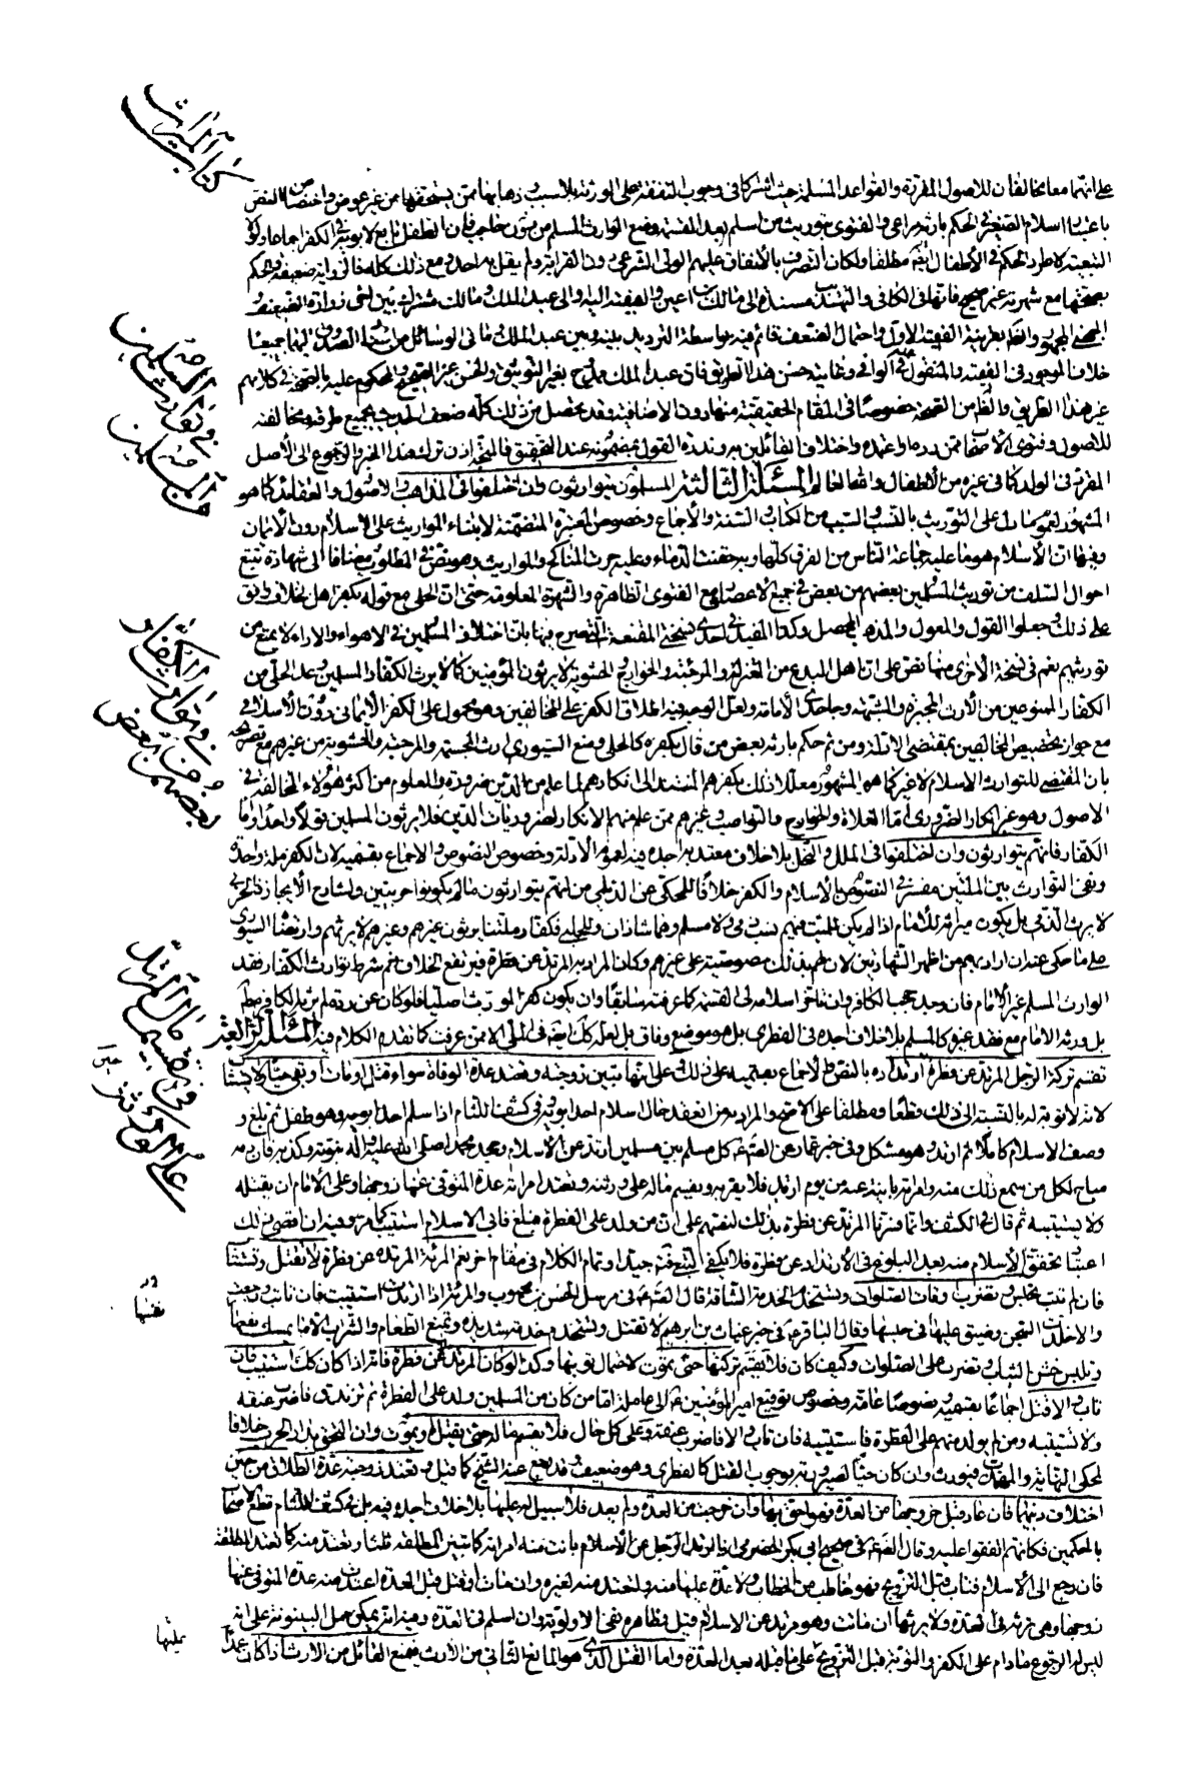 كتاب الميراث
على انهما معا مخالفان للاصول المقررة والقواعد المسلمة حيث اشتركا فى وجوب النفقة على الورثة بلا سبب وذهابها ممن يستحقها من غير عوض واختصاص النص
باعتبار اسلام الصغير فى الحكم بارثه مراعى والفتوى بتوريث من اسلم بعد القسمة ومنع الوارث المسلم من دون حاجب فان الطفل تابع لابويه فى الكفر اجماعا ولولا
التبعية لاطرد الحكم فى الأطفال مطلقا ولكان التصرف بالانفاق عليهم الولى الشرعى دون القرابة ولم يقل به احد ومع ذلك كله فالرواية ضعيفة والحكم
بصحتها مع شهرته غير صحيح فانها فى الكافى والتهذيب مسندة الى مالك بن اعين وفى الفقيه اليه والى عبد الملك ومالك مشترك بين اخى زرارة الضعيف و
الجهنى المجهول
خلاف الموجود فى الفقيه والمنقول فى الوافى وغايته حسن هذا الطريق فان عبد الملك ممدوح بغير التوثيق والحسن غير الصحيح والمحكوم عليه بالصحة فى كلامهم
غير هذا الطريق خصوصا فى المقام الحقيقية منها دون الاضافية وقد تحصل من ذلك كله ضعف الحديث بجميع طرقه ومخالفته
للاصول وفتوى الاصحاب ممن رده واعتمده واختلاف القائلين به وندرة القول بمضمونه عند التحقيق فالمتجه اذن ترك هذا الخبر والرجوع الى الأصل
المقرر فى الولد كما فى غيره من الأطفال والله العالم المسئلة الثالثة المسلمون يتوارثون وان اختلفوا فى المذاهب والاصول والعقائد كما هو
المشهور لعموم ما دل على التوريث بالنسب والسبب من الكتاب والسنة والاجماع وخصوص المعتبرة المتضمنة لابتناء المواريث على الاسلام دون الأيمان
وفيها ان الاسلام هو ما عليه جماعة الناس من الفرق كلها وبه حقنت الدماء وعليه جرت المناكح والمواريث وهو نص فى المطلوب مضافا الى شهادة تتبع
احوال السلف من توريث المسلمين بعضهم من بعض فى جميع الاعصار مع الفتوى الظاهرة والشهرة المعلومة حتى ان الحلى مع قوله بكفر اهل الخلاف وافق
على ذلك وجعلوا القول والمعول والمذهب المحصل وكذا المفيد فى احدى نسختى المقنعة التصريح فيها بان اختلاف المسلمين فى الاهواء والاراء لا يمنع من
توريثهم نعم فى نسخة الاخرى منها نص على ان اهل البدع من المعتزلة والمرجئة والخوارج والحشوية لا يرثون المؤمنين كما لا يرث الكفار المسلمين وعد الحلبى من
الكفار الممنوعين من الأرث المجبرة والمشبهة وجاحدى الأمامة ولعل الوجه فيه اطلاق الكفر على المخالفين وهو محمول على الكفر الأيمانى دون الأسلامى
مع جواز تخصيص المخالفين بمقتضى الادلة ومن ثم حكم بارثه بعض من قال بكفره كالحلى ومنع السيورى ارث المجسمة والمرجئة والحشوية من غيرهم مع تصريحه
بان المقتضى للتوارث الاسلام لا غير كما هو المشهور معللا ذلك بكفرهم المستند الى انكارهم لما علم من الدين ضرورة والمعلوم من اكثر هؤلاء المخالفة فى
الاصول وهو غير انكار الضرورى اما الغلاة والخوارج والنواصب وغيرهم ممن علم منهم الانكار لضروريات الدين فلا يرثون المسلمين قولا واحدا واما
الكفار فانهم يتوارثون وان اختلفوا فى الملل والنحل بلا خلاف معتد به اجده فيه لعموم الادلة وخصوص النصوص والاجماع بقسميه لان الكفر ملة واحدة
ونفى التوارث بين الملتين مفسر فى النصوص بالاسلام والكفر خلافا للمحكى عن الديلمى من انهم يتوارثون ما لم يكونوا حربيين
لا يرث الذمى بل يكون ميراثه للأمام اذا لم يكن للميت منهم نسب ذمى ولا مسلم وهما شاذان وللحلبى فكفار ملتنا يرثون غيرهم وغيرهم لا يرثهم وارتضاه السيورى
على ما حكى عنه ان اراد بهم من اظهر الشهادتين لان لهم بذلك خصوصية على غيرهم وكان المراد به المرتد عن فطرة فيرتفع الخلاف ثم شرط توارث الكفار فقد
الوارث المسلم غير الأمام فان وجد حجب الكافر وان تأخر اسلامه الى القسمة كما عرفته سابقا وان يكون كفر المورث اصليا فلو كان عن ردة لم يرثه الكافر مطلقا
بل ورثه الامام مع فقد غيره كالمسلم بلا خلاف اجده فى الفطرى بل هو موضع وفاق بل لعله كك ايضا فى الملى الا ممن عرفت كما تقدم الكلام فيه المسئلة الرابعة
تقسم تركة الرجل المرتد عن فطرة ارتداده بالنص والاجماع بقسميه على ذلك وعلى انها تبين زوجته وتعتد عدة الوفاة سواء قتل او مات او بقى حيا ولا يستتاب
لانه لا توبة له بالنسبة الى ذلك قطعا ومطلقا على الاصح والمراد به من انعقد حال اسلام احد ابويه وفى كشف اللثام او اسلم احد ابويه وهو طفل ثم بلغ و
وصف الاسلام كاملا ثم ارتد وهو مشكل وفى خبر عمار عن الصادق كل مسلم بين مسلمين ارتد عن الاسلام وجحد محمدا صلى الله عليه وآله نبوته وكذبه فان دمه
مباح لكل من سمع ذلك منه وامراته باينة عنه من يوم ارتد فلا تقربه ويقسم ماله على ورثته وتعتد امراته عدة المتوفى عنها زوجها وعلى الأمام ان يقتله
ولا يستتيبه ثم قال فى الكشف وانما فسرنا المرتد عن فطرة بذلك لنصهم على ان من ولد على الفطرة فبلغ فابى الاسلام استتيب كما مر وفيه ان اقصى ذلك
اعتبار تحقق الاسلام منه بعد البلوغ فى الارتداد عن فطرة فلا يكفى فتأمل جيدا وتمام الكلام فى مقام اخر نعم المرئة المرتدة عن فطرة لا تقتل وتستتاب
فان لم تتب تحبس وتضرب اوقات الصلوات وتستخدم الخدمة الشاقة قال الصادق فى مرسل الحسن بن محبوب والمرئة اذا ارتدت استتيبت فان تابت ورجعت
والا خلدت السجن وضيق عليها فى حبسها وقال الباقر فى خبر غياث بن ابرهيم لا تقتل وتستخدم خدمة شديدة وتمنع الطعام والشراب الا ما يمسك نفسها
وتلبس خشن الثياب وتضرب على الصلوات وكيف كان فلا تقسم تركتها حتى تموت لاحتمال توبتها وكذا لو كان المرتد لا عن فطرة فانه اذا كان كك استتيب فان
تاب والا قتل اجماعا بقسميه ونصوصا عامة وخصوص توقيع امير المؤمنين الى عامله اما من كان من المسلمين ولد على الفطرة ثم تزندق فاضرب عنقه
ولا تستتيبه ومن لم يولد منهم على الفطرة فاستتيبه فان تاب والا فاضرب عنقه وعلى كل حال فلا يقسم ماله حتى يقتل او يموت وان التحق بدار الحرب خلافا
لمحكى النهاية والمهذب فيورث وان كان حيا لصيرورته بوجوب القتل كالفطرى وهو ضعيف وقد رجع عنه الشيخ كما قيل وتعتد زوجته عدة الطلاق من حين
اختلاف دينهما فان عاد قبل خروجها من العدة فهو احق بها وان خرجت من العدة ولم يعد فلا سبيل له عليها بلا خلاف اجده فيه بل فى كشف اللثام قطع الاصحاب
بالحكمين فكانهم اتفقوا عليه وقال الصادق فى صحيح ابى بكر الحضرمى اذا ارتد الرجل عن الأسلام بانت منه امراته كما تبين المطلقة ثلثا وتعتد منه كما تعتد المطلقة
فان رجع الى الاسلام فتاب قبل التزويج فهو خاطب من الخطاب ولا عدة عليها منه وتعتد منه لغيره وان مات او قتل قبل العدة اعتدت منه عدة المتوفى عنها
زوجها وهى ترثه فى العدة ولا يرثها ان ماتت وهو مرتد عن الاسلام قيل وظاهره نفى الاولوية وان اسلم فى العدة وفيه انه يمكن حمل البينونة على انه
ليس له الرجوع ما دام على الكفر والتوبة قبل التزويج على ما قبله بعد العدة واما القتل الذى هو المانع الثانى من الأرث فيمنع القاتل من الارث اذا كان عمدا